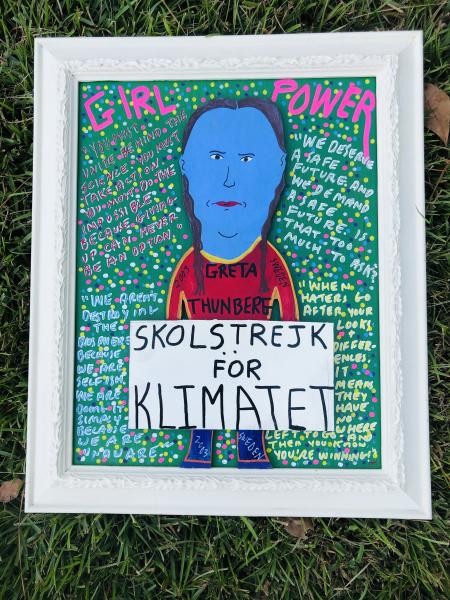 GIRL POWER
"YOU MUST
UNITE BEHIND THE
SCIENCE. YOU MUST
TAKE ACTION.
YOU MUST DO THE
IMPOSSIBLE.
BECAUSE GIVING
UP CAN NEVER
BE AN OPTION"
"WE DESERVE
A SAFE
FUTURE AND
WE DEMAND
A SAFE
FUTURE. IS
THAT TOO
MUCH TO ASK?"
2003
SWEDEN
GRETA
THUNBERG
"WE AREN'T
DESTROYING
THE
BIOSPHERE
BECAUSE
WE ARE
SELFISH.
WE ARE
DOING IT
SIMPLY
BECAUSE
WE ARE
UNAWARE
"WHEN
HATERS GO
AFTER YOUR
LOOKS
DIFFER-
ENCES,
IT
MEANS
THEY
HAVE
NO
WHERE
LEFT TO GO AND
THEN YOU KNOW
YOU'RE WINNING!"
SKOLSTREJK
FÖR
KLIMATET
2003
SWEDEN